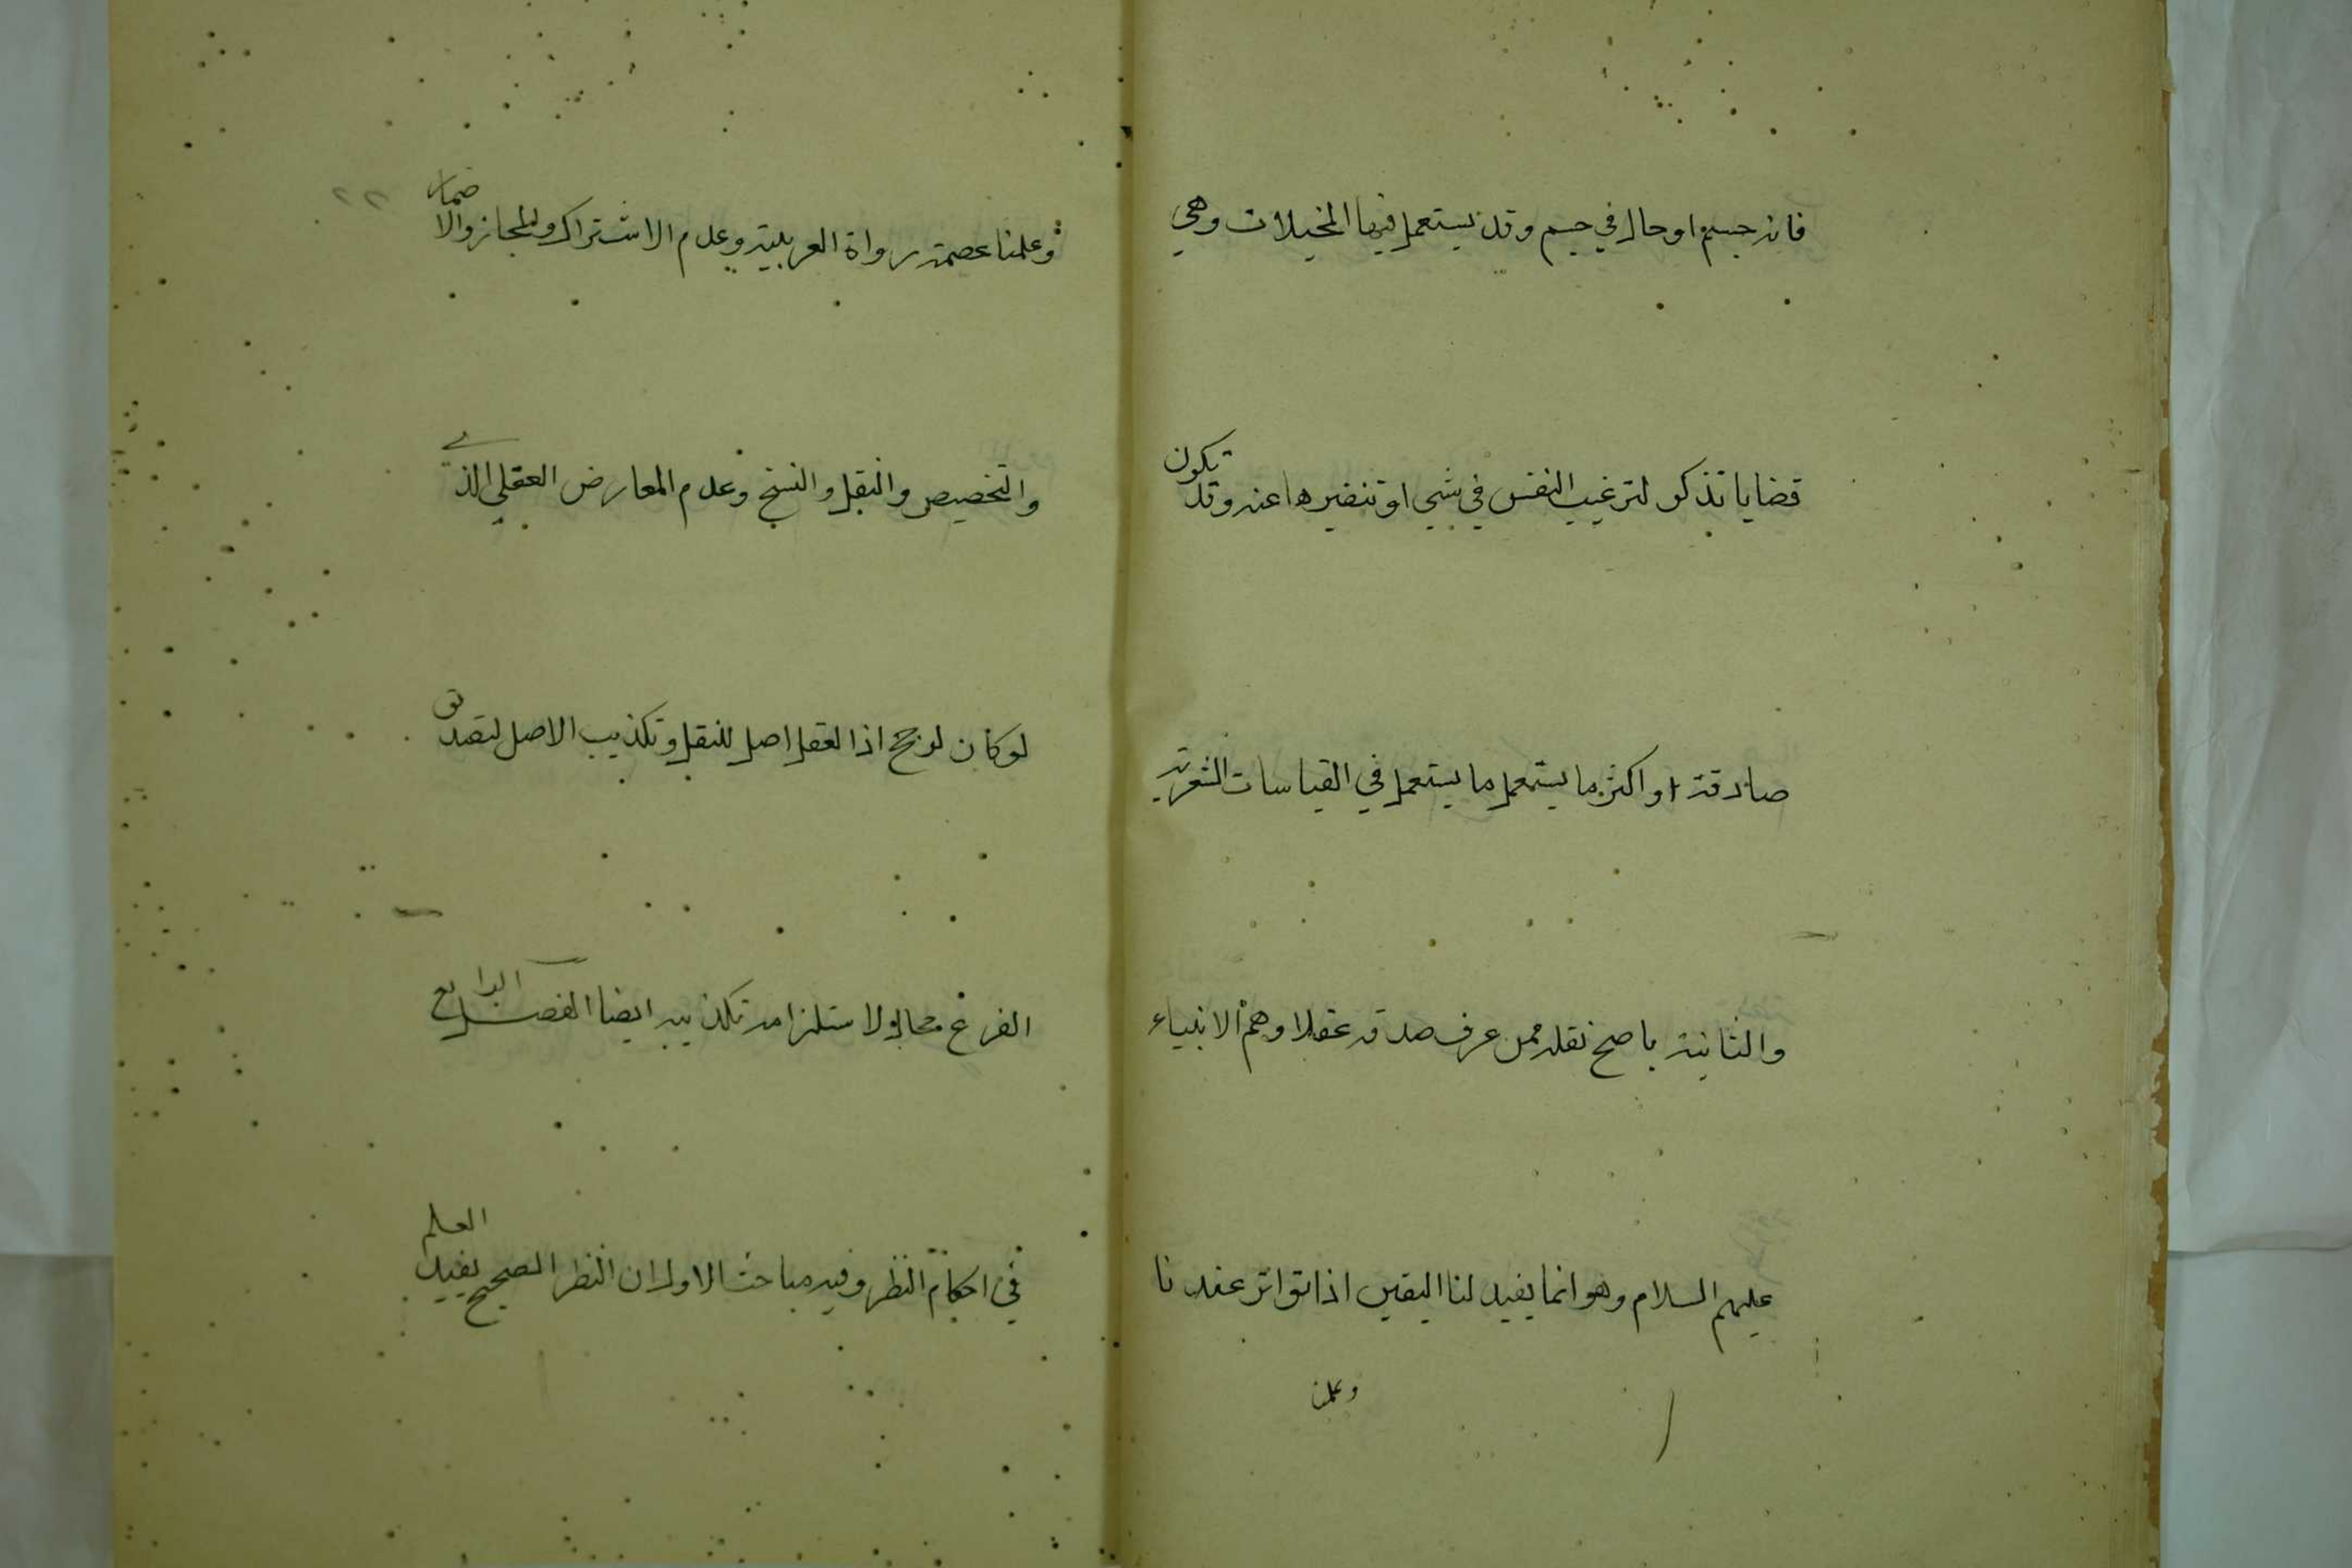 فانه جسم او حال في جسم وقد يستعمل فيها المخيلات وهي
قضايا تذكر لترغيب النفس في شي او تنفيرها عنه وقد تكون
صادقة او اكثر ما يستعمل ما يستعمل في القياسات الشعرية
والثانية ما صح نقله ممن عرف صدقه عقلا وهم الانبياء
عليهم السلام وهو انما يفيد لنا اليقين اذا تواتر عندنا
وعلمنا
٢٢
وعلمنا عصمة رواة العربية وعدم الاشتراك والمجاز والاضمار
والتخصيص والنقل والنسخ وعدم المعارض العقلي الذي
لو كان لرجح اذ العقل اصل للنقل وتكذيب الاصل لتصديق
الفرع محال ولاستلزامه تكذيبه ايضا الفصل الرابع
في احكام النظر وفيه مباحث الاول ان النظر الصحيح يفيد العلم